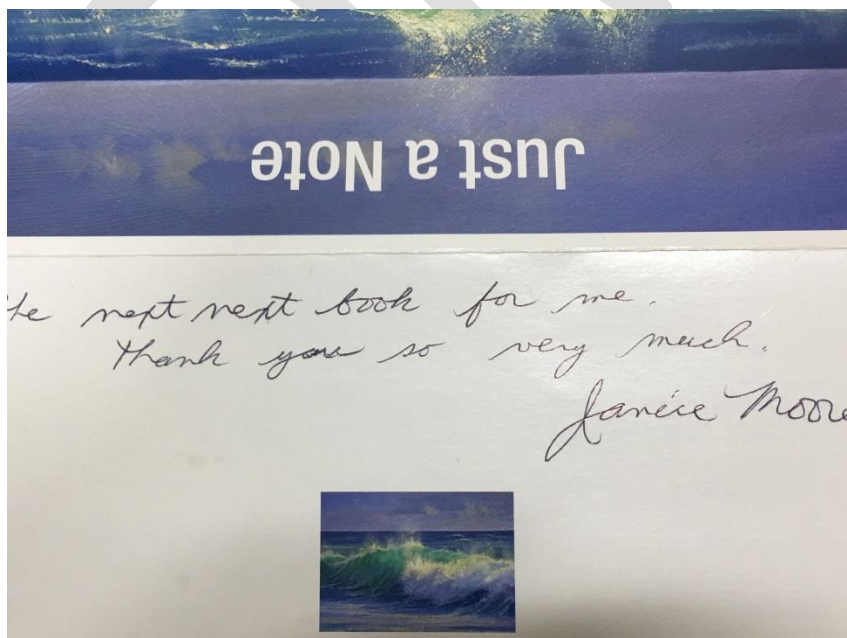 Just a Note
the next next book for me.
Thank you so very much.
Janice Moore